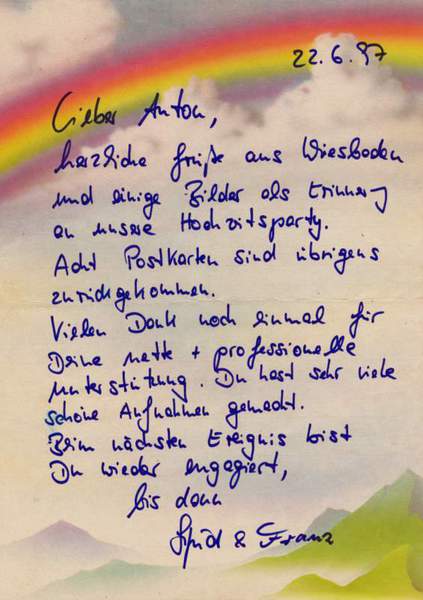 22.6.97
Lieber Anton,
herzliche Grüße aus Wiesbaden
und einige Bilder als Erinnerg
an unsere Hochzeitsparty.
Acht Postkarten sind übrigens
zurückgekommen.
Vielen Dank noch einmal für
Deine nette + professionelle
Unterstützung. Du hast sehr viele
schöne Aufnahmen gemacht.
Beim nächsten Ereignis bist
Du wieder engagiert,
bis dann
& Franz